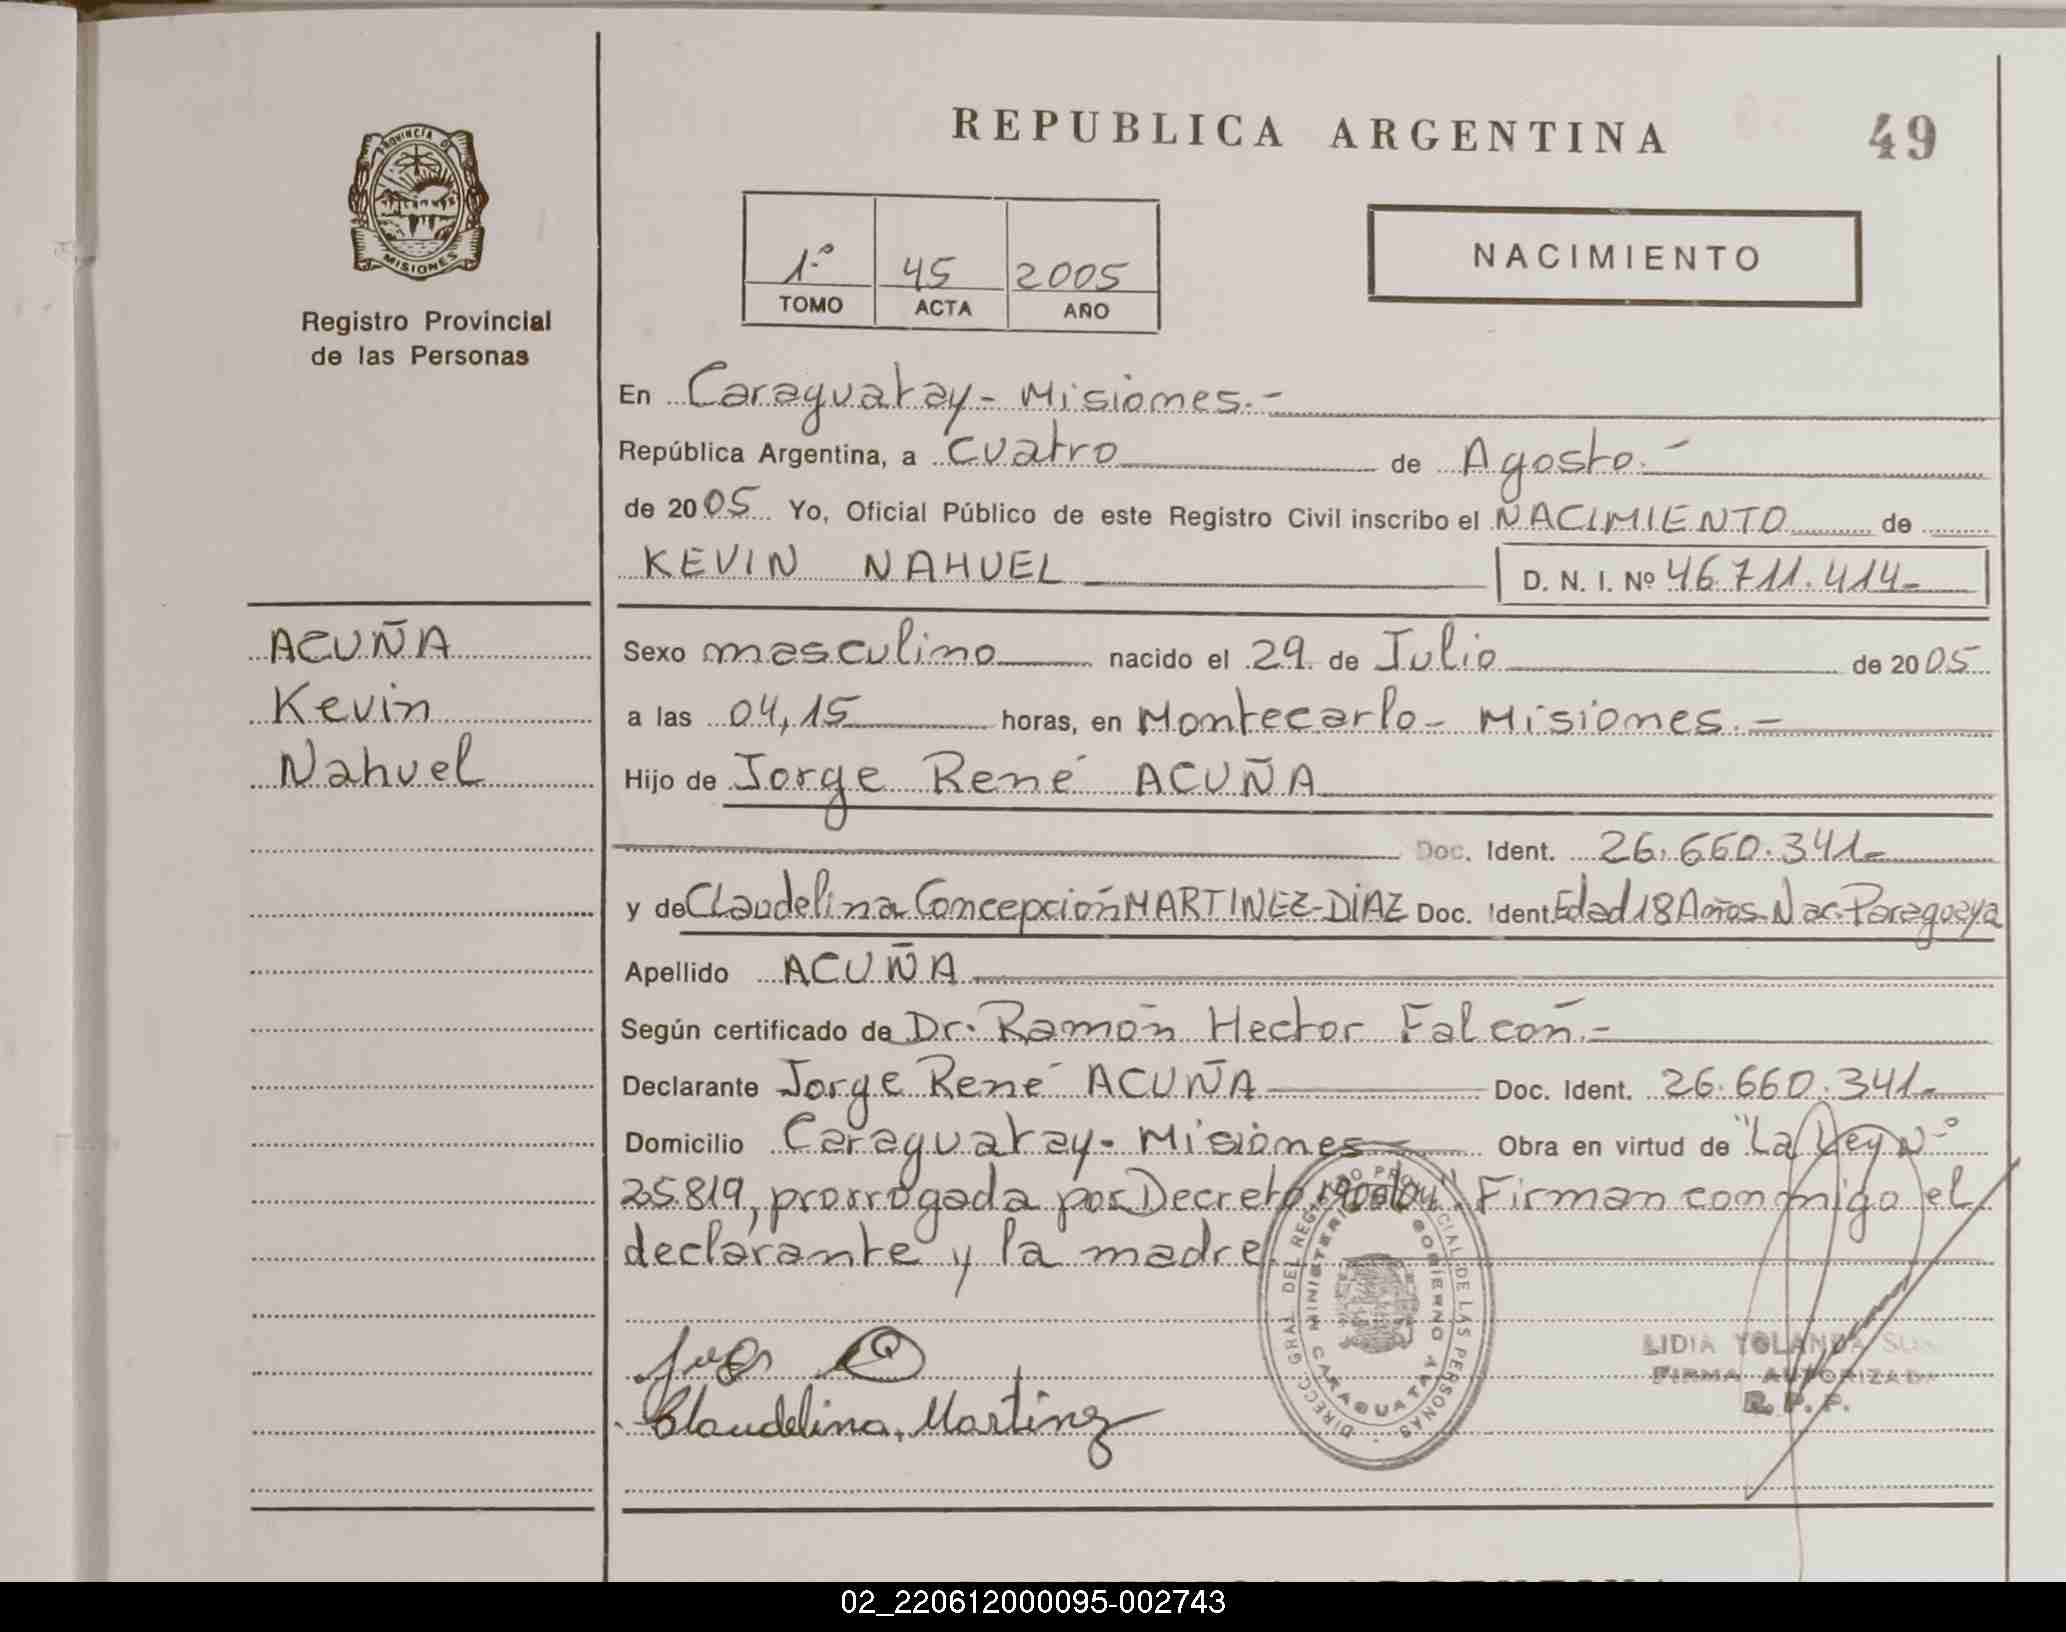 REPUBLICA ARGENTINA
49
PROVINCIA DE
MISIONES
Registro Provincial
de las Personas
1º 45 2005
TOMO ACTA AÑO
NACIMIENTO
En Caraguatay - Misiones.-
República Argentina, a cuatro de Agosto.-
de 2005 Yo, Oficial Público de este Registro Civil inscribo el NACIMIENTO de
KEVIN NAHUEL D. N. I. Nº 46.711.414-
ACUÑA
Kevin
Nahuel
Sexo masculino nacido el 29 de Julio de 2005
a las 04,15 horas, en Montecarlo - Misiones.-
Hijo de Jorge René ACUÑA
Doc. Ident. 26.660.341-
y de Claudelina Concepción MARTINEZ-DIAZ Doc. Ident. Edad 18 Años-Nac. Paraguaya
Apellido ACUÑA
Según certificado de Dr. Ramón Hector Falcon.-
Declarante Jorge René ACUÑA Doc. Ident. 26.660.341-
Domicilio Caraguatay - Misiones Obra en virtud de "La Ley Nº
25.819, prorrogada por Decreto Firman conmigo el
declarante y la madre
Claudelina Martinez
DIRECC. GRAL DEL REGISTRO PROVINCIAL DE LAS PERSONAS
MINISTERIO GOBIERNO
CARAGUATAY
LIDIA YOLANDA
FIRMA AUTORIZADA
R. P. P.
02_220612000095-002743